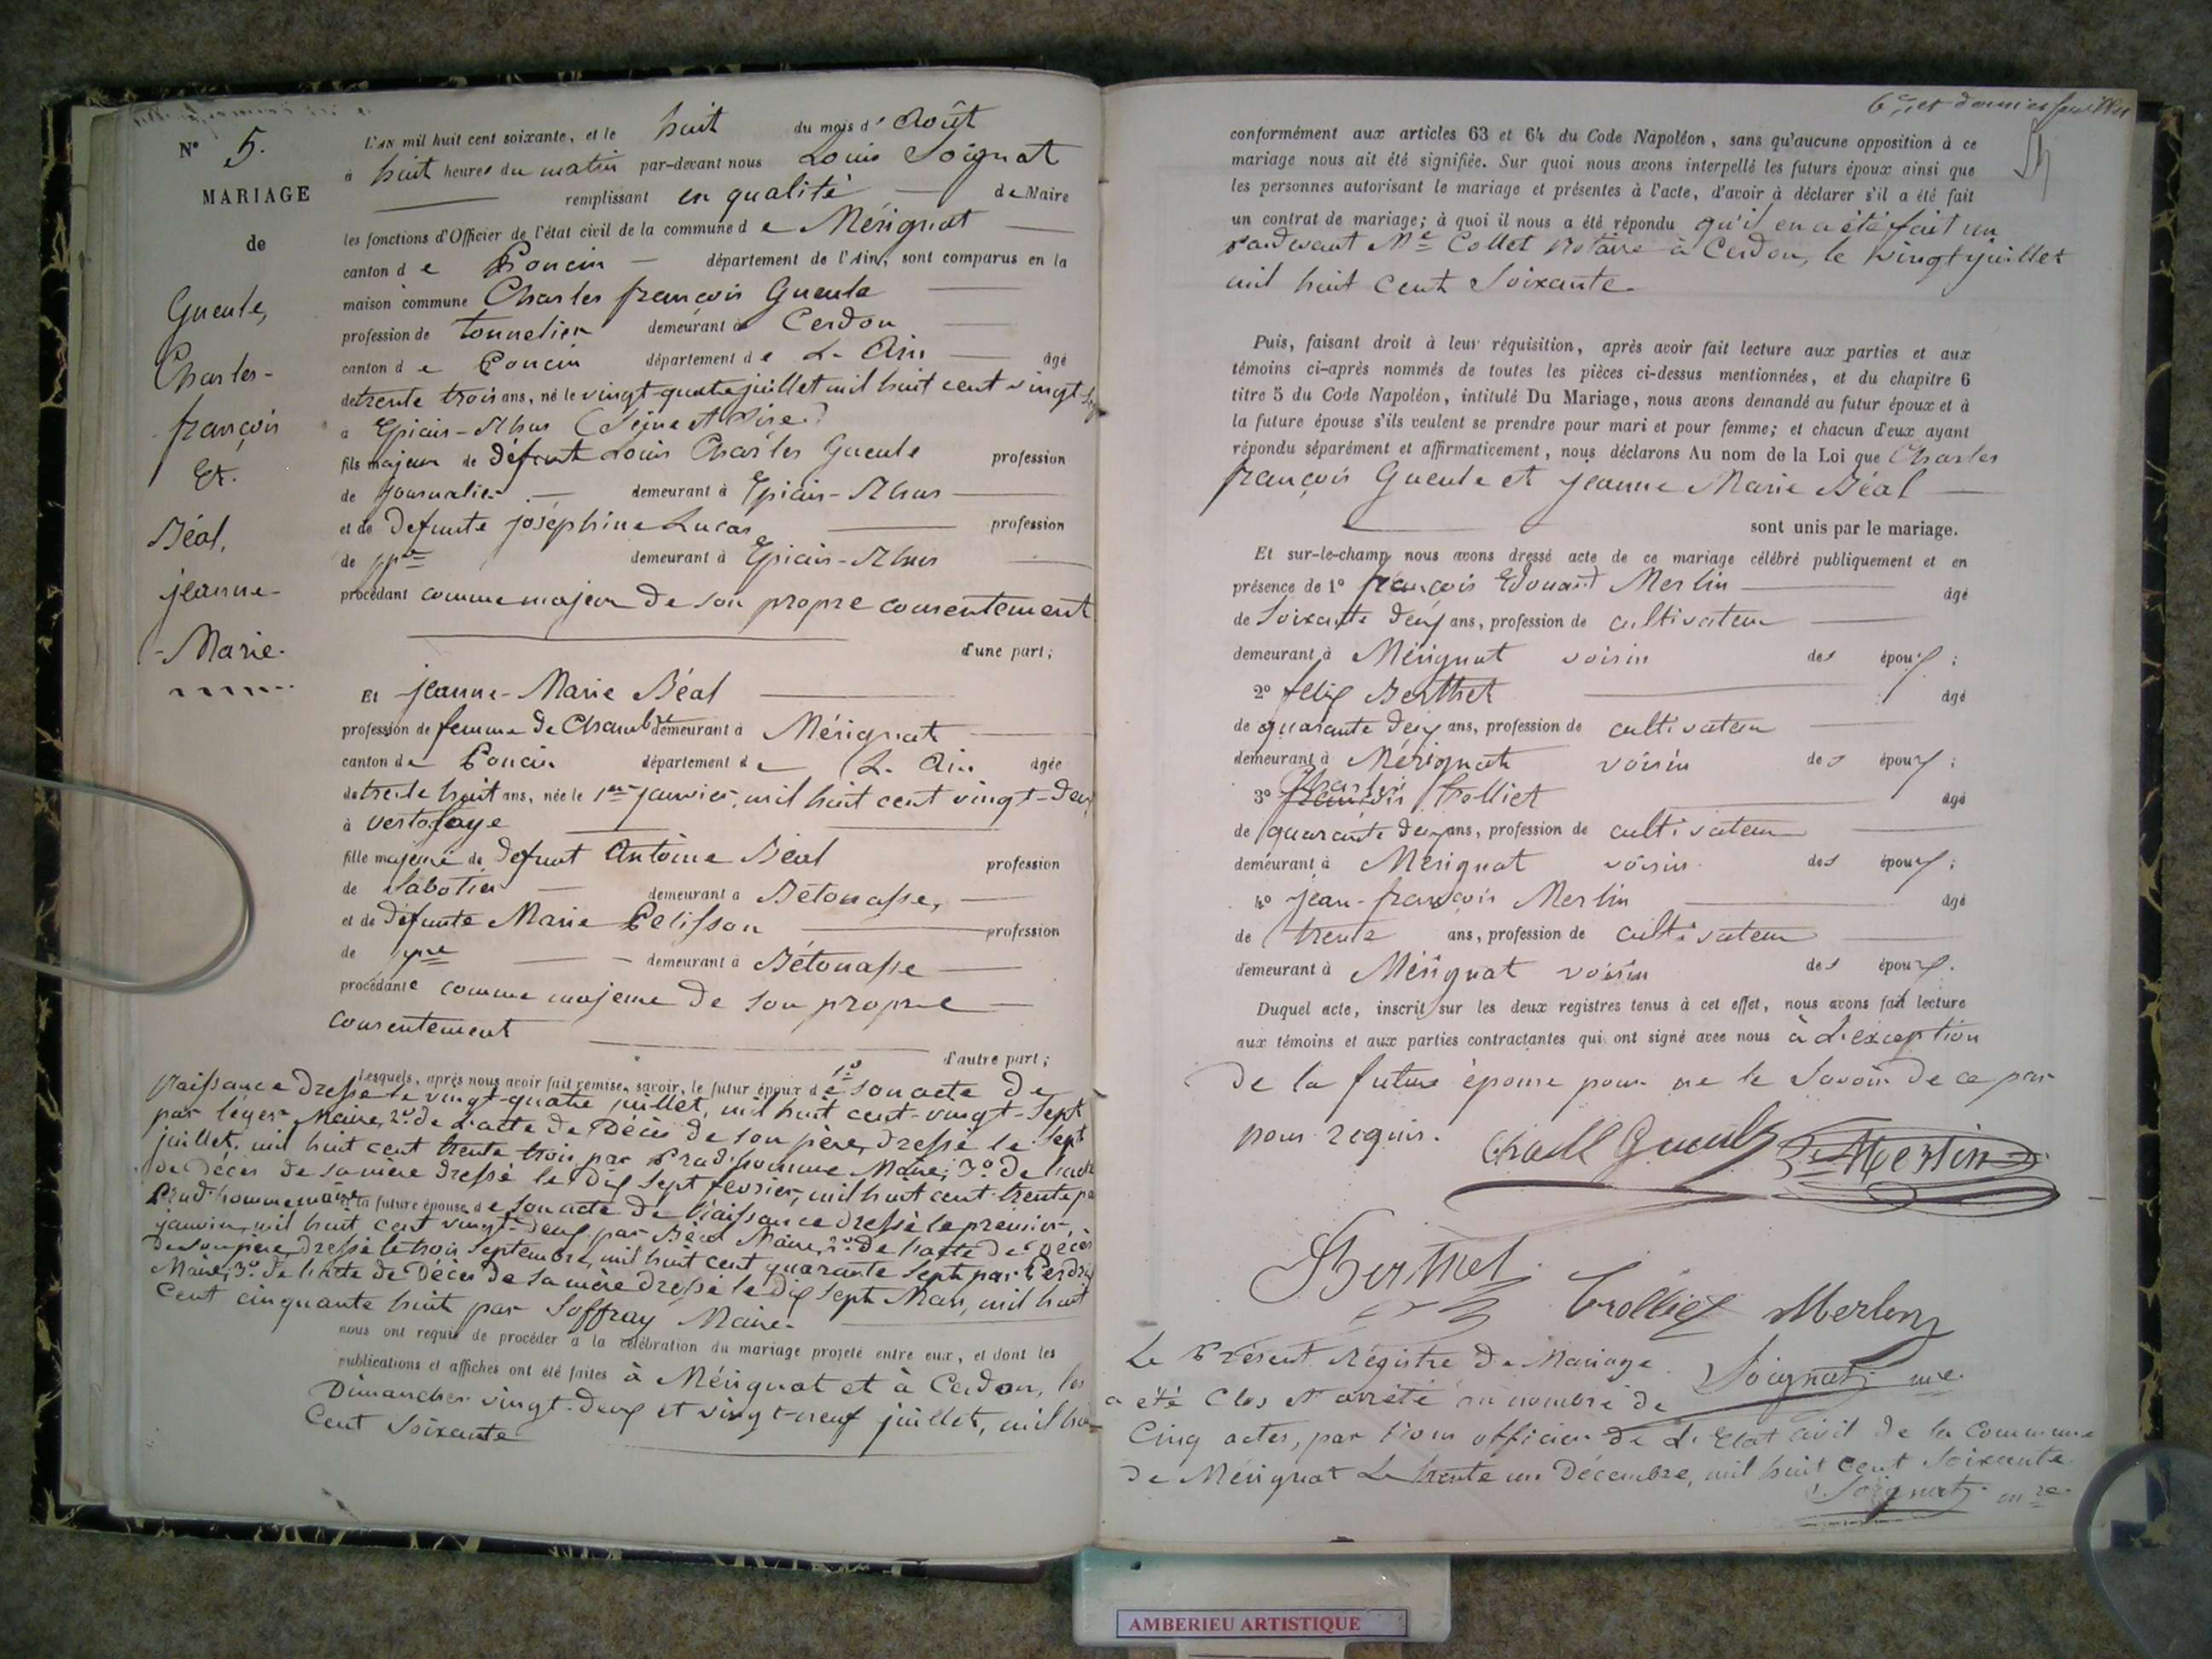 N° 5.
MARIAGE
de
Gueule,
Charles-
françois
Et.
Béal,
jeanne-
-Marie-
L'AN mil huit cent soixante, et le huit du mois d' Août
à huit heures du matin par-devant nous Louis Soignat
remplissant en qualité de Maire
les fonctions d'Officier de l'état civil de la commune de Mérignat
canton de Poncin département de l'Ain, sont comparus en la
maison commune Charles françois Gueule
profession de tonnelier demeurant à Cerdon
canton de Poncin département de L'Ain âgé
de trente trois ans, né le vingt-quatre juillet mil huit cent vingt sept
à Epiais-Rhus (Seine et Oise)
fils majeur de défunt Louis Charles Gueule profession
de journalier demeurant à Epiais-Rhus
et de defunte joséphine Lucas profession
de demeurant à Epiais-Rhus
procédant comme majeur de son propre consentement
d'une part;
Et jeanne-Marie Béal
profession de femme de Chamb demeurant à Mérignat
canton de Poncin département de L'Ain âgée
de trente huit ans, née le 1er janvier, mil huit cent vingt-deux
à Vertolaye
fille majeure de defunt Antoine Béal profession
de Sabotier demeurant à Bétonasse,
et de défunte Marie Pelisson profession
de demeurant à Bétonasse
procédante comme majeure de son propre
consentement
d'autre part;
Lesquels, après nous avoir fait remise, savoir, le futur époux de 1° son acte de
Naissance dressé le vingt-quatre juillet, mil huit cent-vingt-sept
par Léger Maire, 2° de L'acte de Décès de son père, dressé le sept
juillet, mil huit cent trente trois par Prud'homme Maire; 3° de l'acte
de Décès de sa mère dressé le dix sept fevrier, mil huit cent trente pa
Prud'homme maire la future épouse de son acte de Naissance dressé le premier
janvier, mil huit cent vingt-deux par Béal Maire, 2° de l'acte de Décès
de son père, dressé le trois Septembre, mil huit cent quarante sept par
Maire; 3° de l'acte de Décès de sa mère dressé le dix sept Mars, mil huit
Cent cinquante huit par Soffray Maire-
nous ont requis de procéder à la célébration du mariage projeté entre eux, et dont les
publications et affiches ont été faites à Mérignat et à Cerdon, les
Dimanches vingt-deux et vingt-neuf juillet, mil hui
Cent Soixante
6e et dernier feuillet
conformément aux articles 63 et 64 du Code Napoléon, sans qu'aucune opposition à ce
mariage nous ait été signifiée. Sur quoi nous avons interpellé les futurs époux ainsi que
les personnes autorisant le mariage et présentes à l'acte, d'avoir à déclarer s'il a été fait
un contrat de mariage; à quoi il nous a été répondu qu'il en a été fait un
pardevant Me Collet Notaire à Cerdon, le vingt juillet
mil huit Cent Soixante-
Puis, faisant droit à leur réquisition, après avoir fait lecture aux parties et aux
témoins ci-après nommés de toutes les pièces ci-dessus mentionnées, et du chapitre 6
titre 5 du Code Napoléon, intitulé Du Mariage, nous avons demandé au futur époux et à
la future épouse s'ils veulent se prendre pour mari et pour femme; et chacun d'eux ayant
répondu séparément et affirmativement, nous déclarons Au nom de la Loi que Charles
françois Gueule et jeanne Marie Béal
sont unis par le mariage.
Et sur-le-champ nous avons dressé acte de ce mariage célébré publiquement et en
présence de 1° françois Edouard Merlin âgé
de Soixante deux ans, profession de cultivateur
demeurant à Mérignat voisin des époux;
2° felix Berthet âgé
de quarante deux ans, profession de cultivateur
demeurant à Mérignat voisin des époux;
Charles
3° françois Trolliet âgé
de quarante deux ans, profession de cultivateur
demeurant à Mérignat voisin des époux;
4° jean-françois Merlin âgé
de trente ans, profession de cultivateur
demeurant à Mérignat voisin des époux.
Duquel acte, inscrit sur les deux registres tenus à cet effet, nous avons fait lecture
aux témoins et aux parties contractantes qui ont signé avec nous à L'exception
de la future épouse pour ne le Savoir de ce par
nous requis. Gueule Merlin
Berthet
Trolliet Merlin
Le Présent Régistre de Mariage Soignat mre
a été Clos et arrêté au nombre de
Cinq actes, par Nous officier de L'Etat Civil de la Commune
de Mérignat Le trente un Décembre, mil huit Cent Soixante
Soignat mre
AMBERIEU ARTISTIQUE